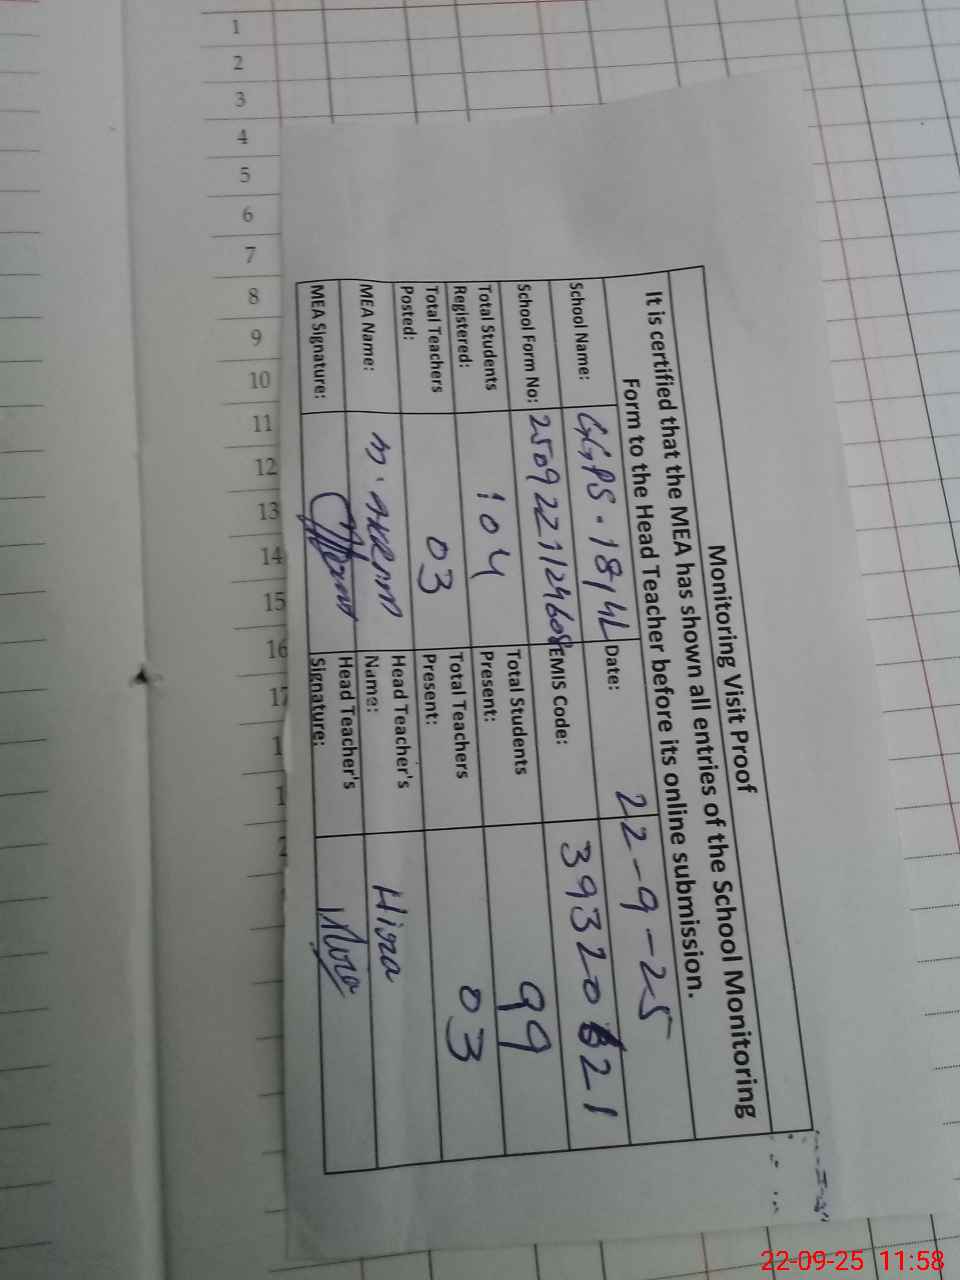 Monitoring Visit Proof
It is certified that the MEA has shown all entries of the School Monitoring
Form to the Head Teacher before its online submission.
School Name: GGPS. 18/4L Date: 22-9-25
School Form No: EMIS Code:
Total Students Registered: 104 Total Students Present: 99
Total Teachers Posted: 03 Total Teachers Present: 03
MEA Name: M. AKRAM Head Teacher's Name: Hira
MEA Signature: Head Teacher's Signature: Hira
1
2
3
4
5
6
7
8
9
10
11
12
13
14
15
16
22-09-25 11:58